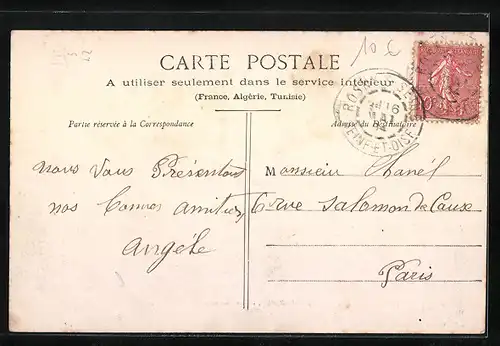 10 €
CARTE POSTALE
A utiliser seulement dans le service intérieur
(France, Algérie, Tunisie)
Partie réservée à la Correspondance
Adresse du Destinataire
SEINE-ET-OISE
nous Vous Présentons
nos Bonnes amitiés
Angèle
Monsieur
6 rue Salomon de Caux
Paris